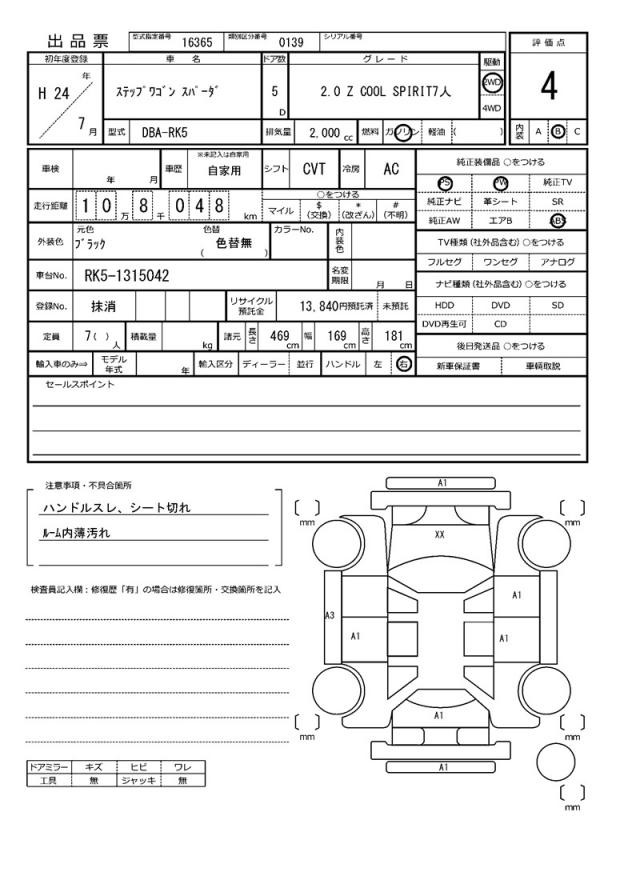 出品票 型式指定番号 16365 類別区分番号 0139 シリアル番号
評価点
初年度登録 車名 ドア数 グレード 駆動
H 24 年 7 月 ステップワゴン スパーダ 5 D 2.0 Z COOL SPIRIT7人 2WD 4WD 4
型式 DBA-RK5 排気量 2,000 cc 燃料 ガソリン 軽油 ( ) 内装 A B C
車検 年 月 車歴 ※未記入は自家用 自家用 シフト CVT 冷房 AC
純正装備品 ○をつける
PS PW 純正TV
走行距離 1 0 万 8 千 0 4 8 km ○をつける
マイル $(交換) *(改ざん) #(不明)
純正ナビ 革シート SR
純正AW エアB ABS
外装色 元色 ブラック 色替 ( 色替無 ) カラーNo. 内装色
TV種類(社外品含む)○をつける
フルセグ ワンセグ アナログ
車台No. RK5-1315042 名変期限 月 日
ナビ種類(社外品含む)○をつける
登録No. 抹消 リサイクル預託金 13,840円預託済 未預託
HDD DVD SD
DVD再生可 CD
定員 7( )人 積載量 kg 諸元 長さ 469 cm 幅 169 cm 高さ 181 cm
後日発送品 ○をつける
輸入車のみ⇒ モデル年式 年 輸入区分 ディーラー 並行 ハンドル 左 右
新車保証書 車輌取説
セールスポイント
注意事項・不具合箇所
ハンドルスレ、シート切れ
ルーム内薄汚れ
検査員記入欄：修復歴「有」の場合は修復箇所・交換箇所を記入
A1
mm mm
XX
A1
A3
A1 A1
A1
mm mm
A1
mm
ドアミラー キズ ヒビ ワレ
工具 無 ジャッキ 無